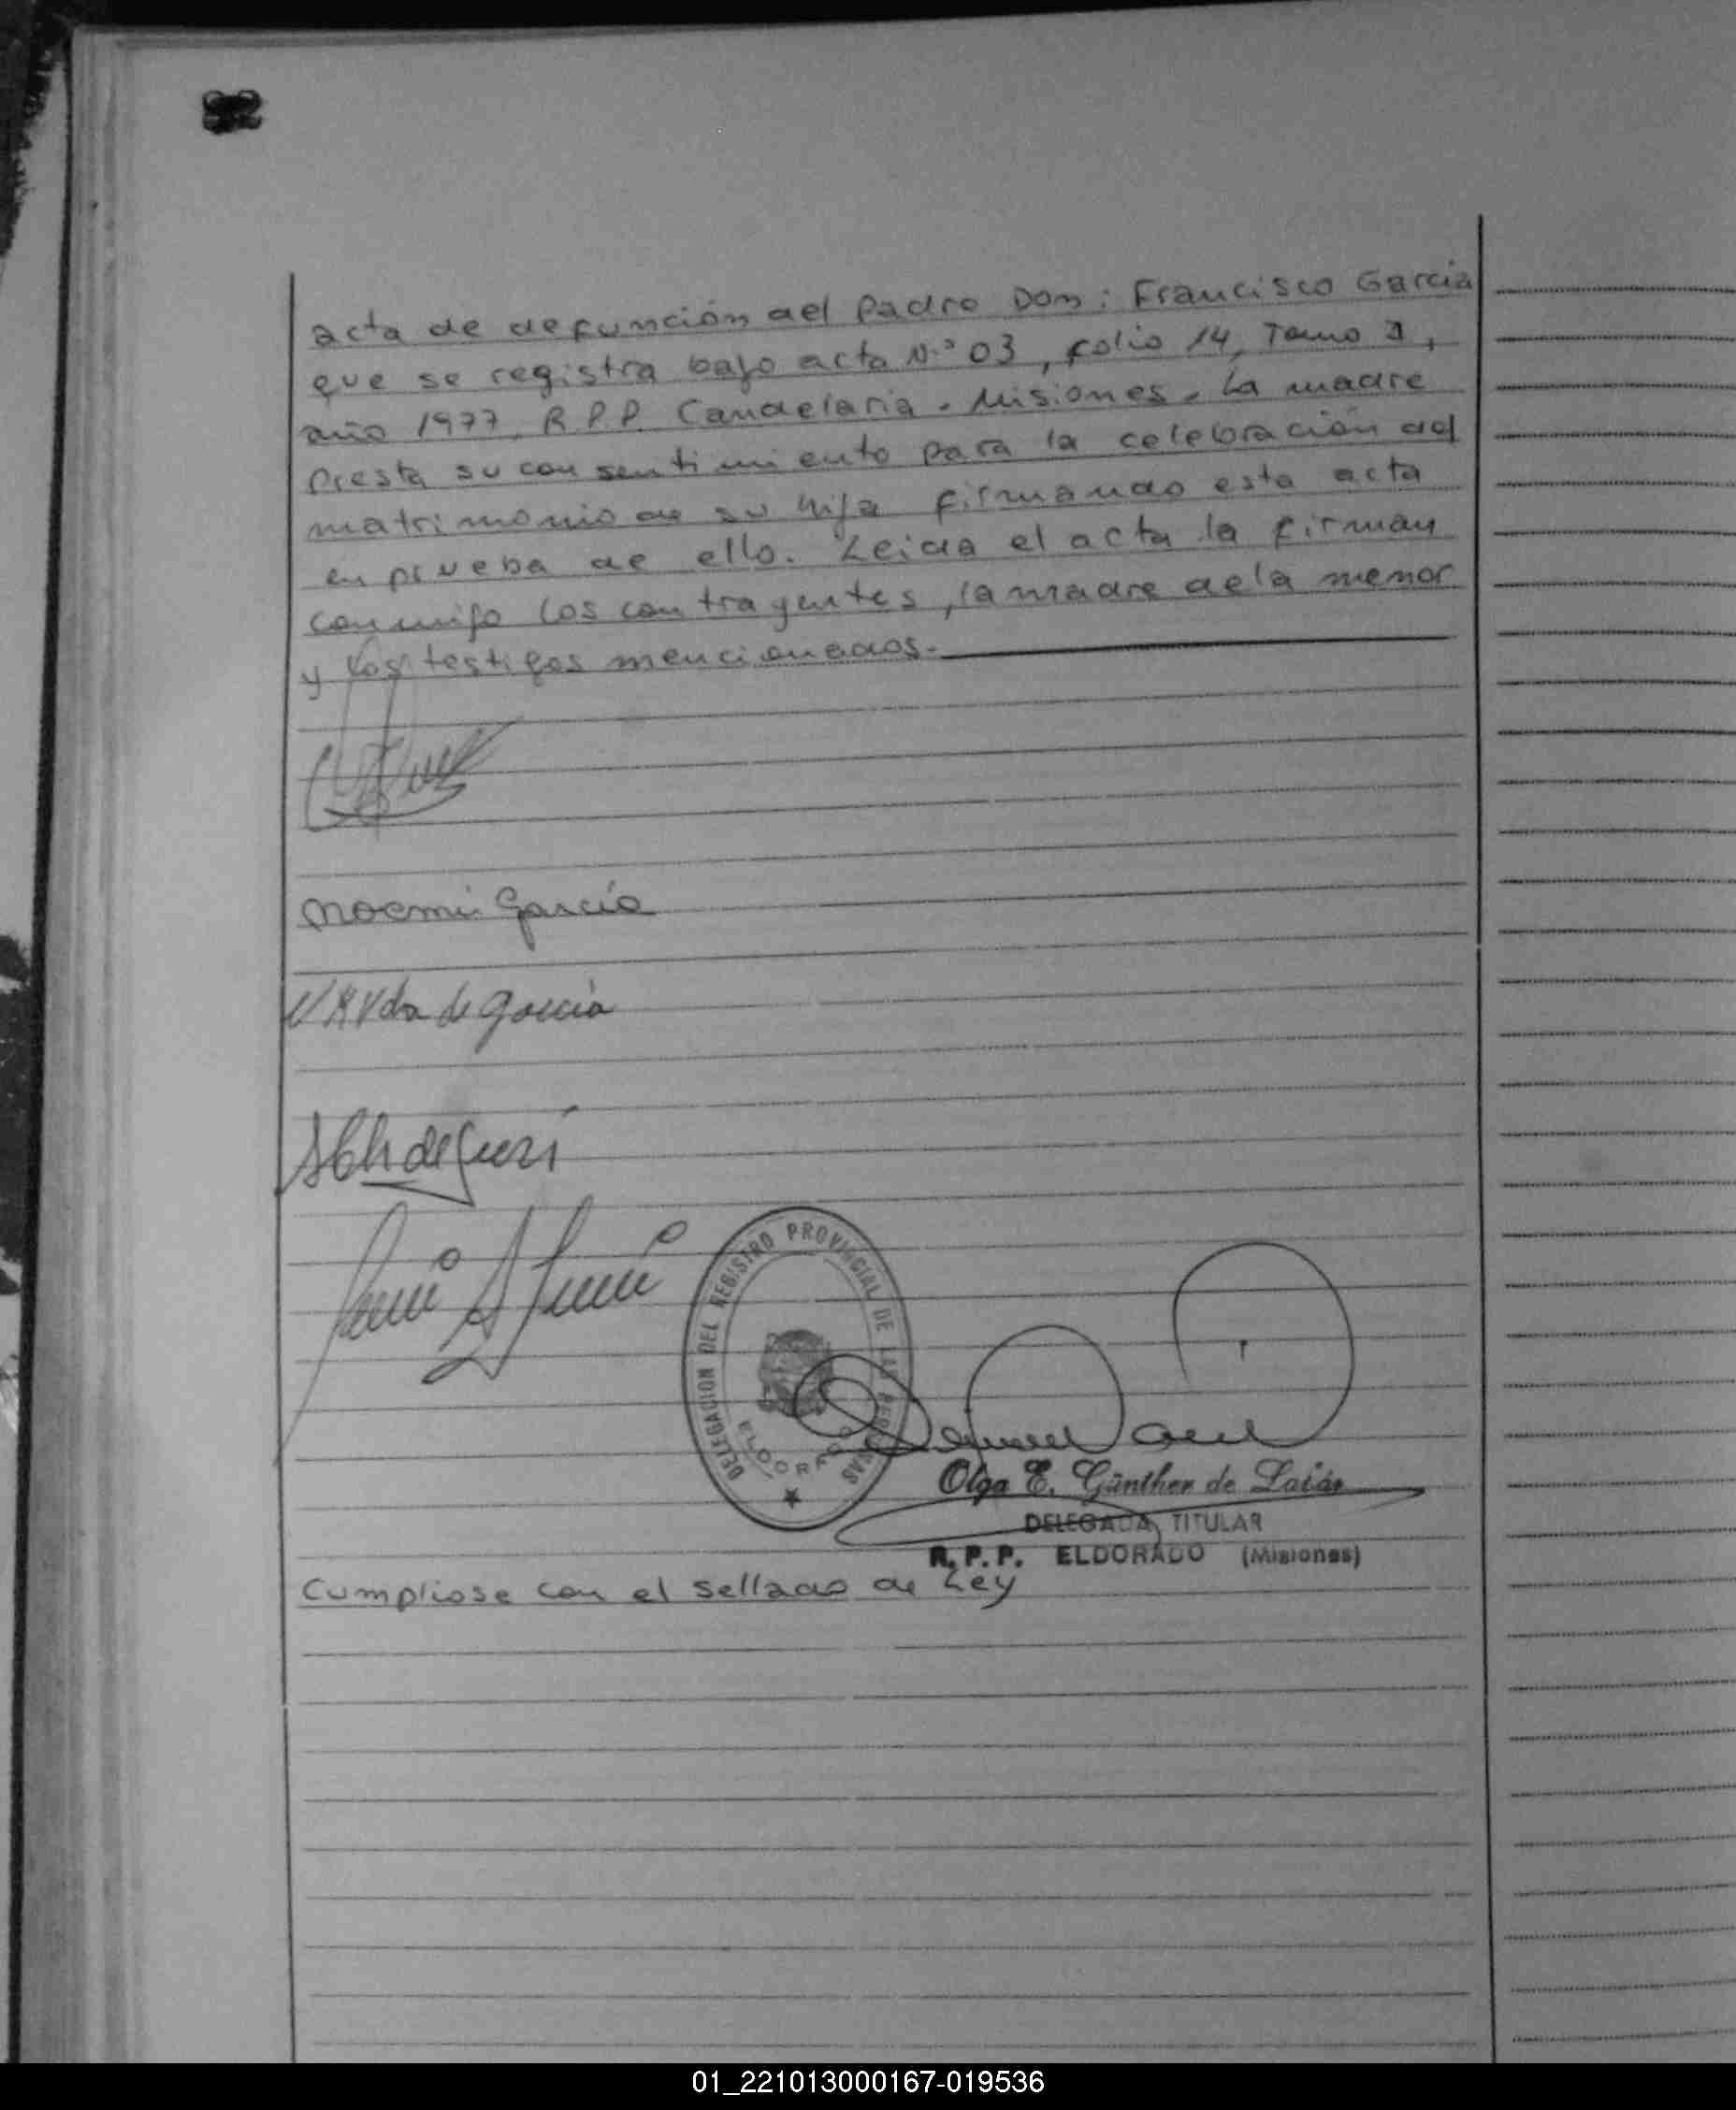 acta de defunción del Padre Don: Francisco García
que se registra bajo acta N.º 03, folio 14, Tomo I,
año 1977, R.P.P. Candelaria - Misiones. La madre
Presta su consentimiento para la celebración del
matrimonio de su hija firmando esta acta
en prueba de ello. Leida el acta la firman
conmigo los contrayentes, la madre de la menor
y los testigos mencionados.
Noemi García
Vda de García
DELEGACION DEL REGISTRO PROVINCIAL DE LAS PERSONAS
ELDORADO
Olga E. Günther de
DELEGADA TITULAR
R.P.P. ELDORADO (Misiones)
Cumpliose con el sellado de Ley
01_221013000167-019536